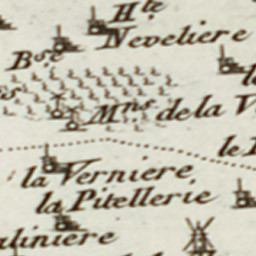 Hte
Neveliere
Bse
Mns de la V
le
la Verniere
la Pitellerie
aliniere